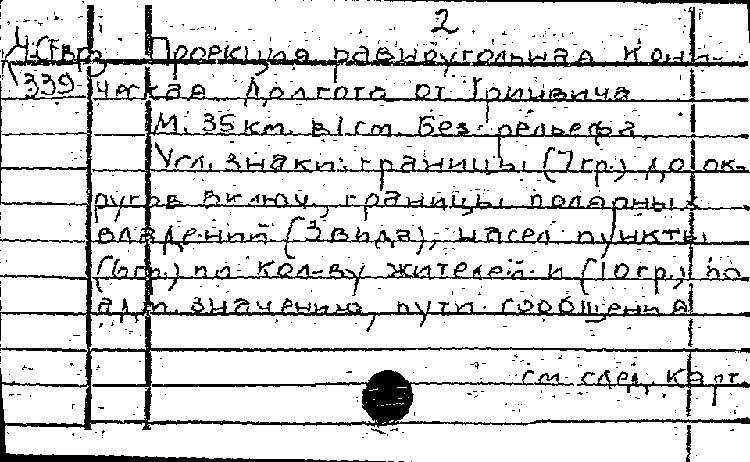 2
Проекция равноугольная кони-
339 ческая Долгота от Гринвича
М. 35 км. в 1 см. Без рельефа.
Усл. знаки: границы (7 гр.) до ок-
ругов включ., границы полярных
владений (3 вида), насел пункты
(6 гр.) по кол-ву жителей и (10 гр.) по
адм. значению, пути сообщения
см. след. карт.